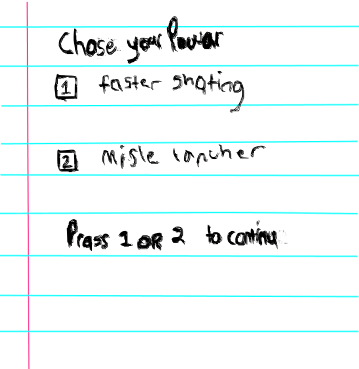 Chose your Power
1 faster shoting
2 misle lancher
Prass 1 OR 2 to continu